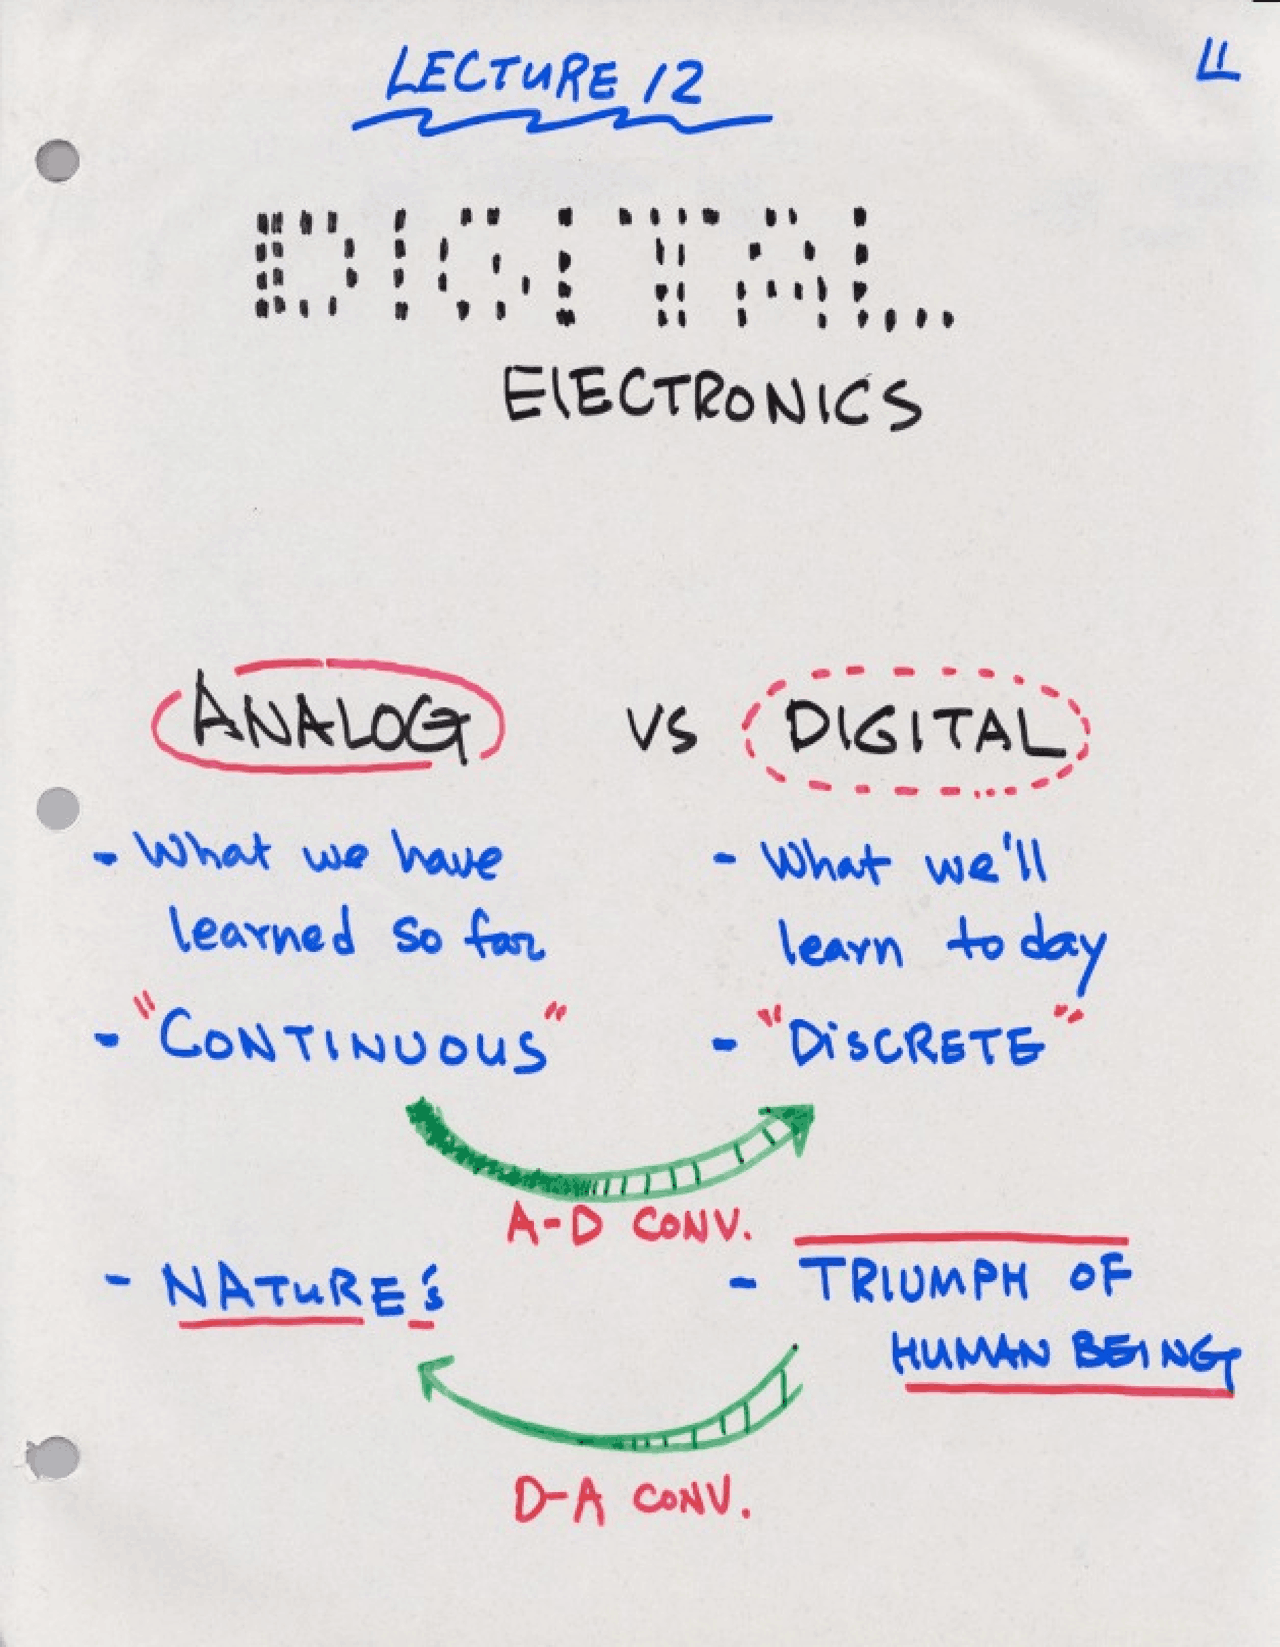 LECTURE 12
DIGITAL
ELECTRONICS
ANALOG VS DIGITAL
- What we have
learned so far
- What we'll
learn today
- "CONTINUOUS"
- "DISCRETE"
A-D CONV.
- NATURE's
- TRIUMPH OF
HUMAN BEING
D-A CONV.